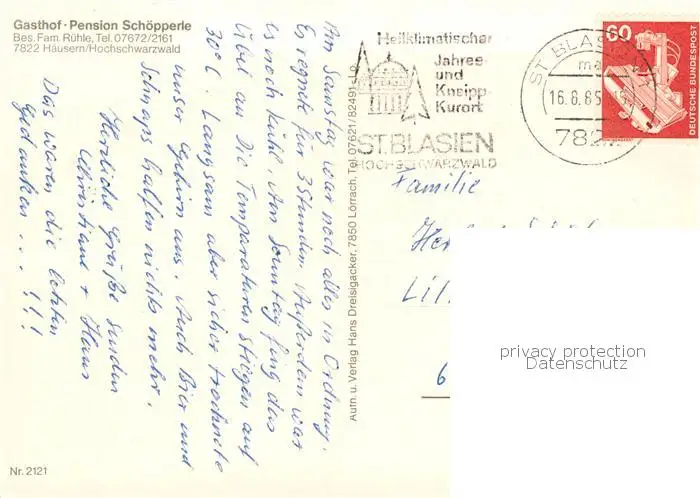 Gasthof · Pension Schöpperle
Bes. Fam. Rühle, Tel. 07672/2161
7822 Häusern/Hochschwarzwald
Am Samstag war noch alles in Ordnung.
Es regnete für 3 Stunden. Außerdem war
es noch kühl. Am Sonntag fing das
Übel an. Die Temperaturen stiegen auf
30°C. Langsam aber sicher trocknete
unser Gehirn aus. Auch Bier und
Schnaps halfen nichts mehr.
Herzliche Grüße senden
Christiane + Hans
Das waren die letzten
Gedanken ... !!!
Nr. 2121
Aufn. u. Verlag Hans Dreisigacker, 7850 Lörrach, Tel. 07621/82491
Heilklimatischer
Jahres
und
Kneipp-
Kurort
ST. BLASIEN
HOCHSCHWARZWALD
ST BLASIEN 1
ma
16.8.85
782
60
DEUTSCHE BUNDESPOST
Familie
6
privacy protection
Datenschutz